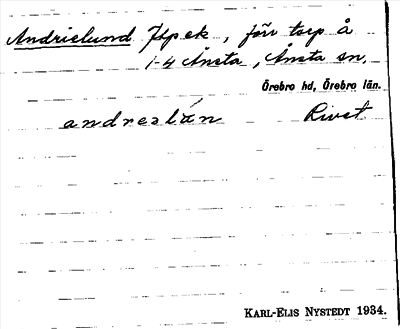 Andrielund ffpek, förr torp å
1-4 Ånsta, Ånsta sn
Örebro hd, Örebro län.
andreslún Rivet
KARL-ELIS NYSTEDT 1934.